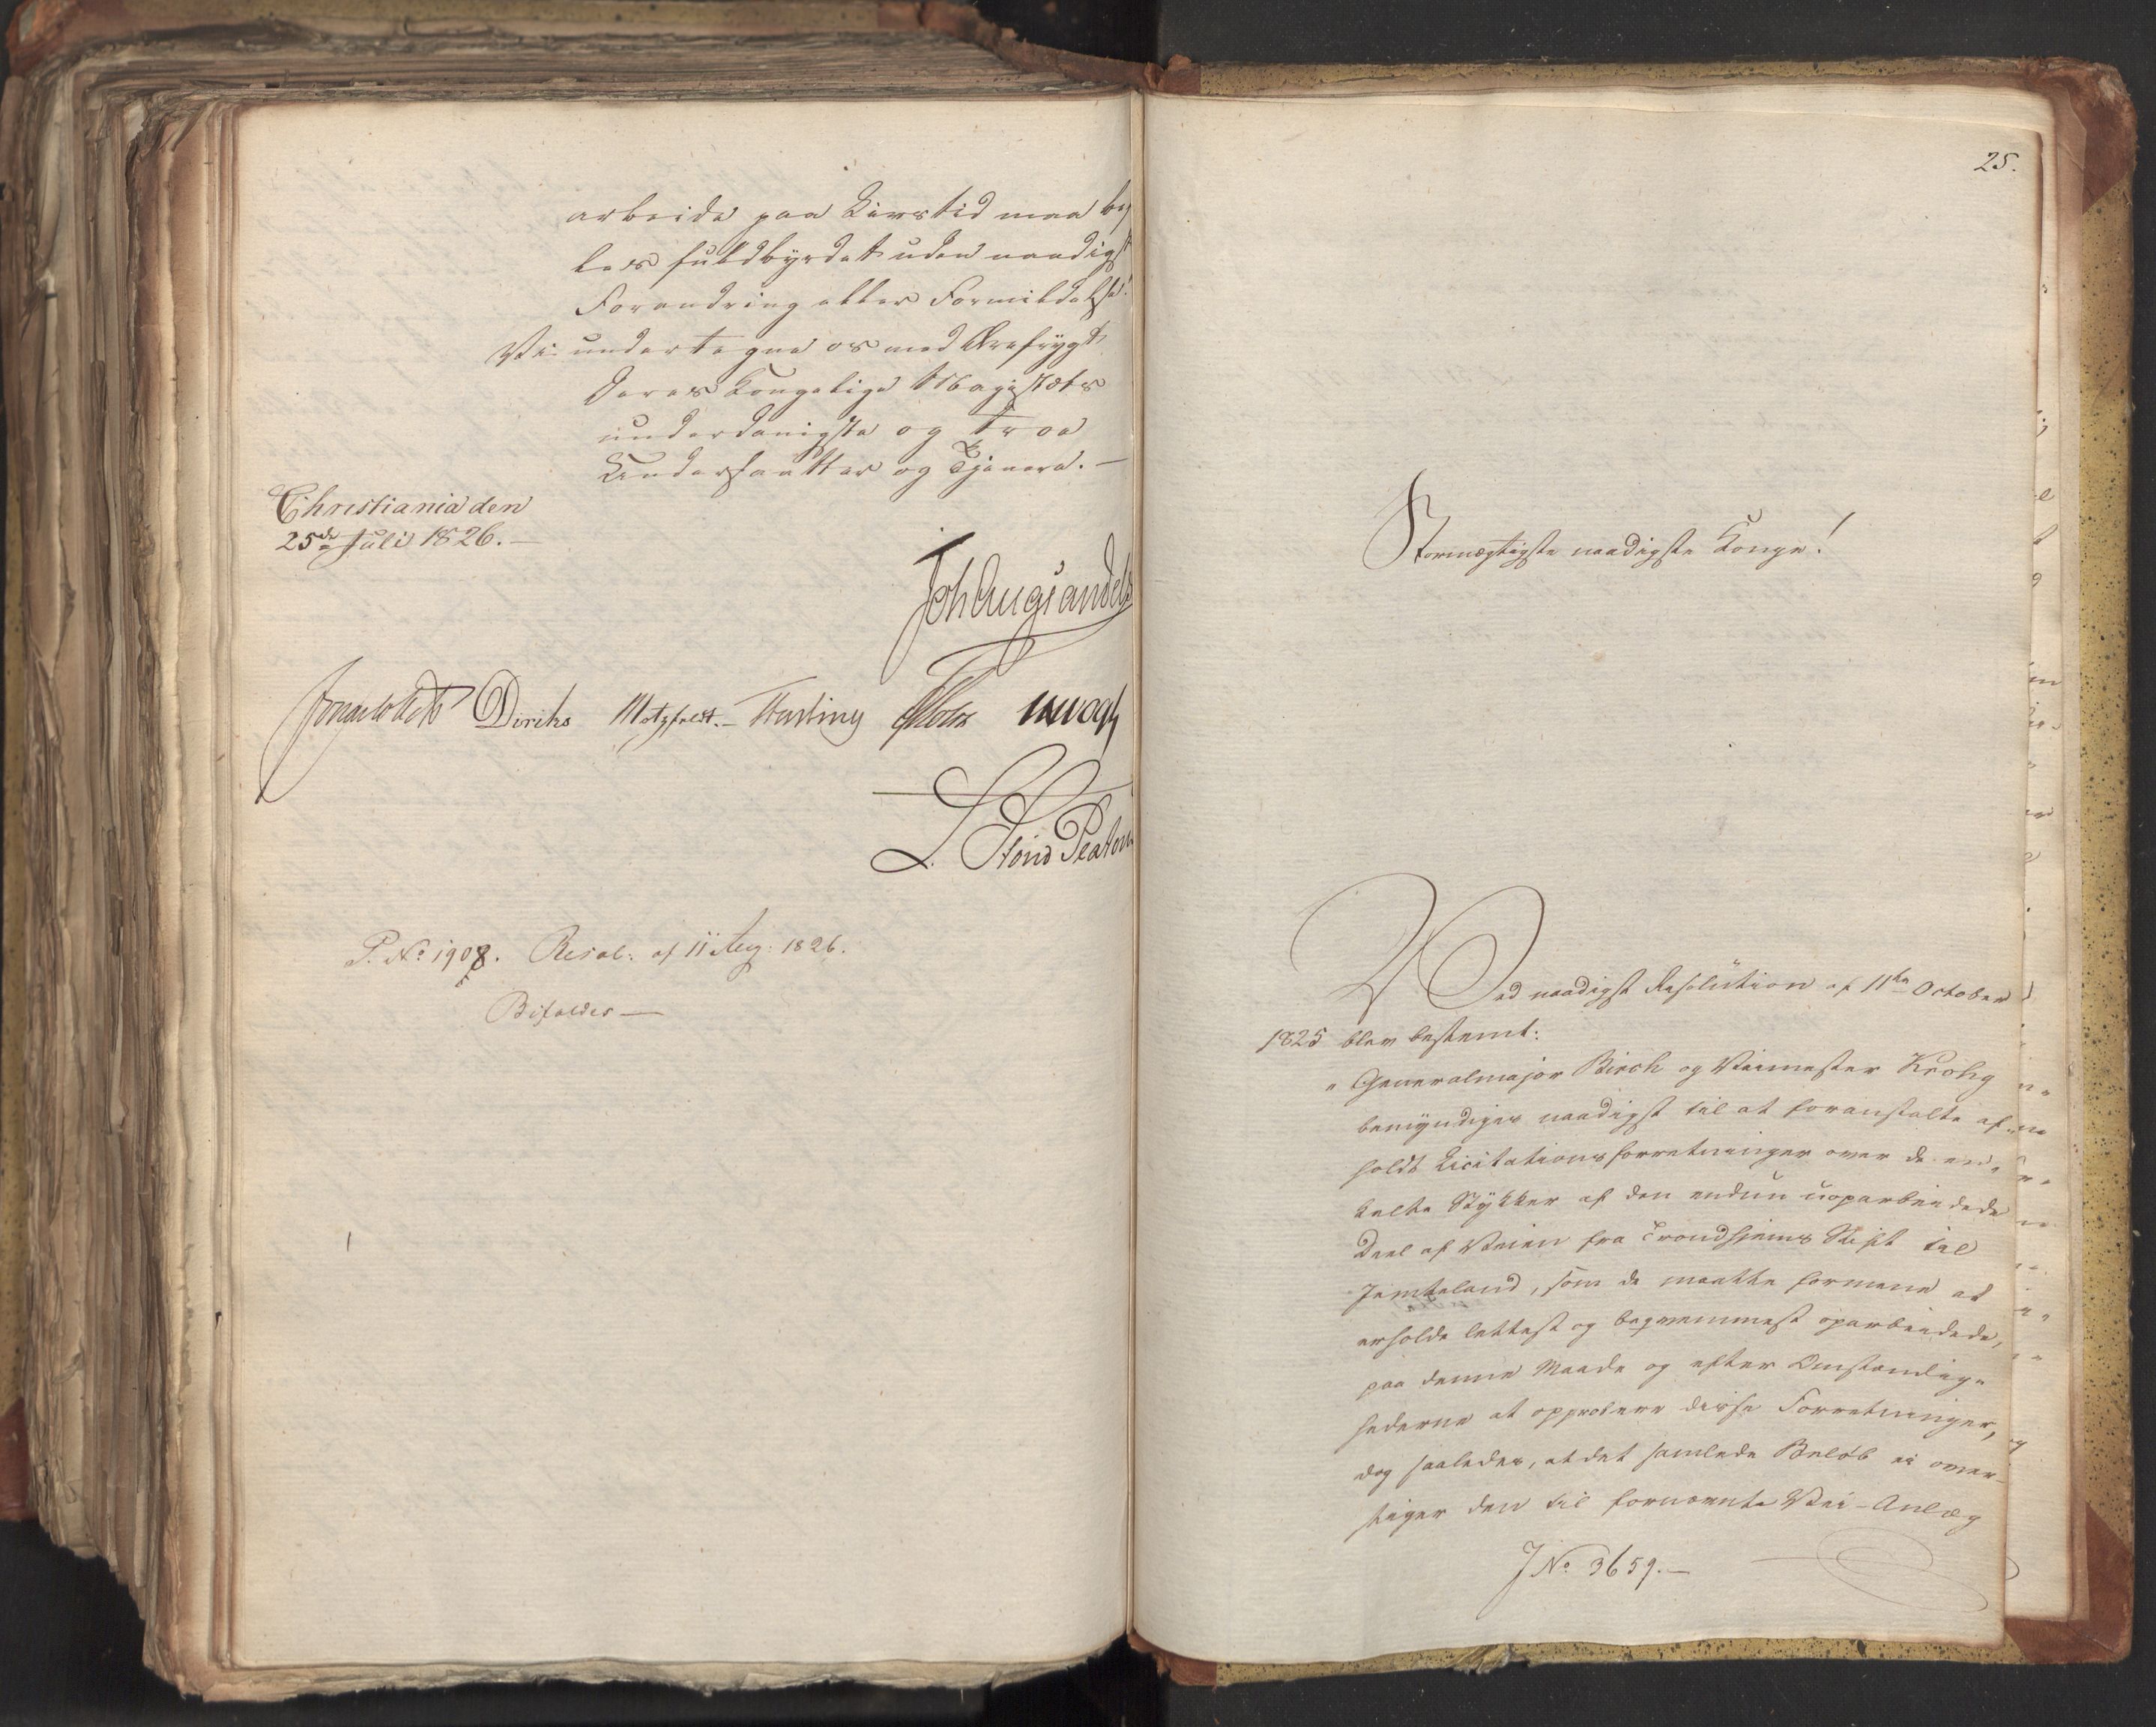 arbeide paa Livstid maa
les fuldbyrdet uden naadigst
Forandring eller Formildelse.
Vi undertegne os med Ærefrygt
Deres Kongelige Majestæts
underdanigste og troe
Undersaatter og Tjenere. —
Christiania den
25de Juli 1826. —
Joh Aug Sandels
Diriks Motzfeldt. Fasting Holst
P. No 1908. Resol: af 11 Aug: 1826.
Bifaldes —
25.
Stormægtigste naadigste Konge!
Ved naadigst Resolution af 11te October
1825 blev bestemt:
" Generalmajor Birch og Veimester Krohg
bemyndiges naadigst til at foranstalte af-
holdt Licitationsforretninger over de en-
kelte Stykker af den endnu uoparbeidede
Deel af Veien fra Trondhjems Stift til
Jemteland, som de maatte formene at
erholde lettest og beqvemmest oparbeidede,
paa denne Maade og efter Omstændig-
hederne at approbere disse Forretninger,
dog saaledes, at det samlede Beløb ei over-
stiger den til fornævnte Vei-Anlæg
J No 3659. —